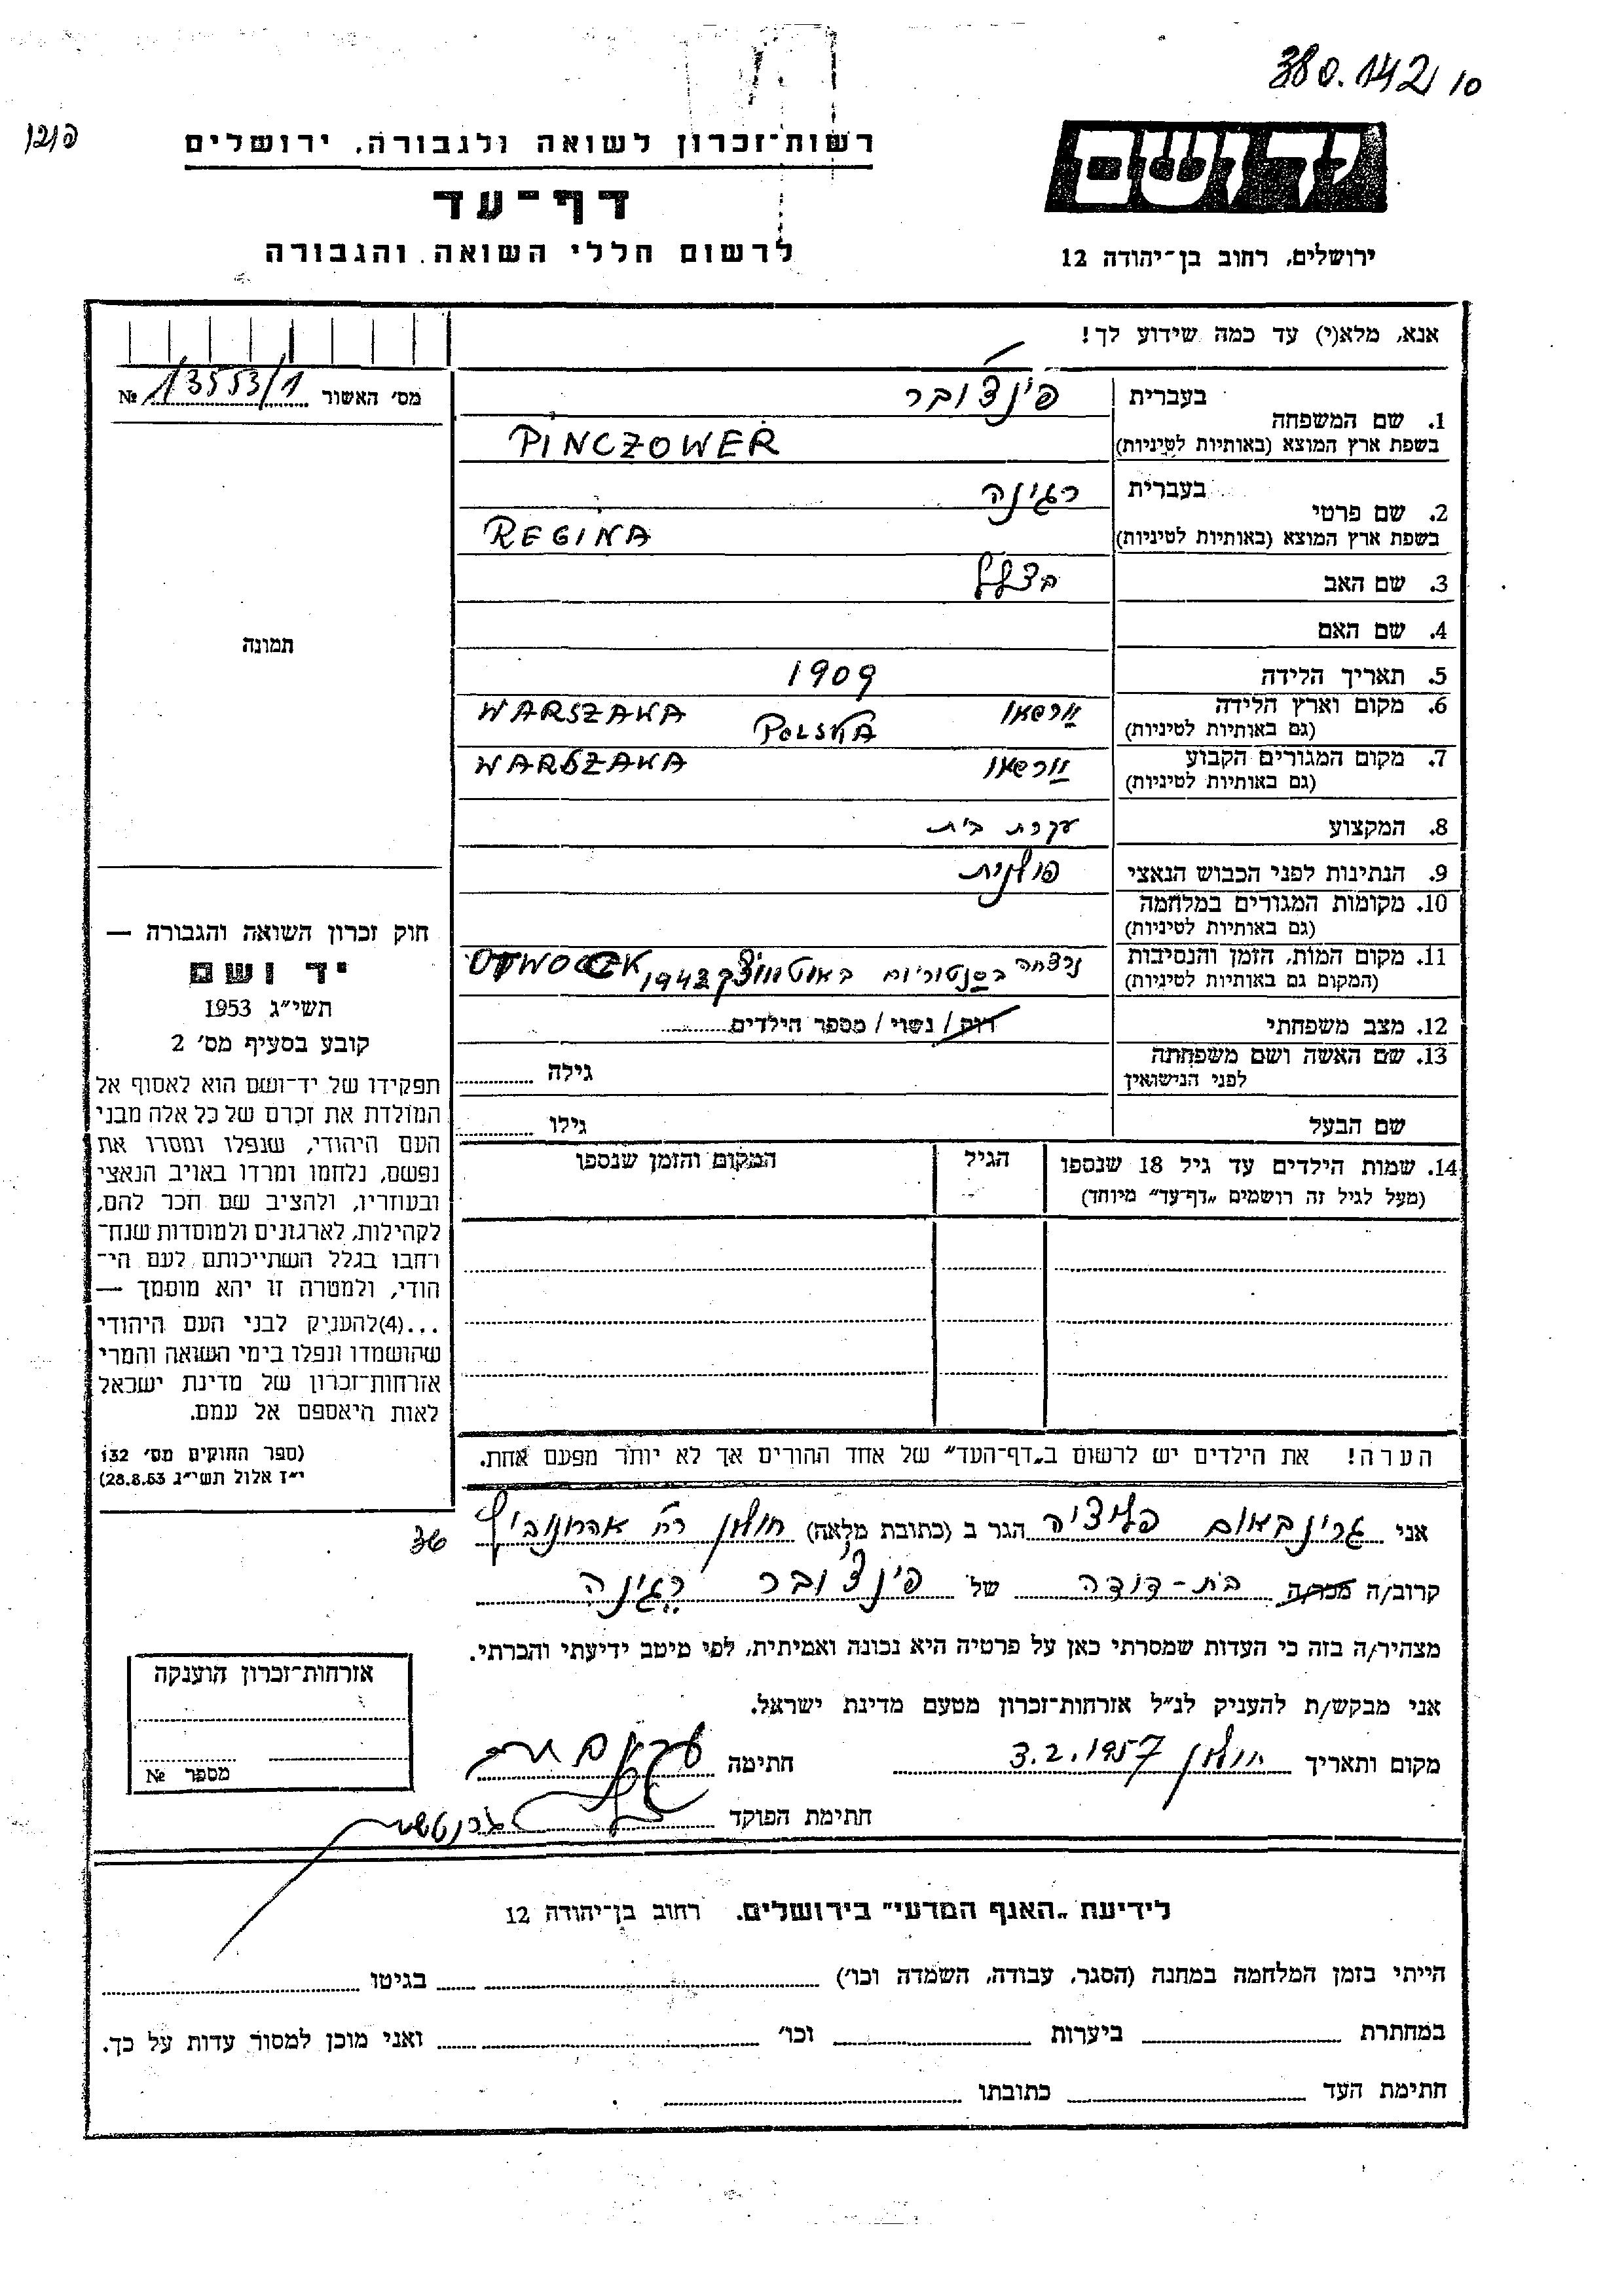 380.142/10
יד ושם
ירושלים, רחוב בן־יהודה 12
רשות־זכרון לשואה ולגבורה, ירושלים
דף־עד
לרשום חללי השואה והגבורה
אנא, מלא(י) עד כמה שידוע לך!
מס׳ האשור 13553/1 №
1. שם המשפחה
בעברית פינצ'ובר
בשפת ארץ המוצא (באותיות לטיניות) PINCZOWER
2. שם פרטי
בעברית רגינה
בשפת ארץ המוצא (באותיות לטיניות) REGINA
3. שם האב בצלל
4. שם האם
5. תאריך הלידה 1909
6. מקום וארץ הלידה וורשאו WARSZAWA
(גם באותיות לטיניות) POLSKA
7. מקום המגורים הקבוע וורשאו WARSZAWA
(גם באותיות לטיניות)
8. המקצוע עקרת בית
9. הנתינות לפני הכבוש הנאצי פולנית
10. מקומות המגורים במלחמה
(גם באותיות לטיניות)
11. מקום המות, הזמן והנסיבות נרצחה בסנטוריום באוטווצק 1942 OTWOCK
(המקום גם באותיות לטיניות)
12. מצב משפחתי רווק / נשוי / מספר הילדים
13. שם האשה ושם משפחתה
לפני הנישואין גילה
שם הבעל גילו
14. שמות הילדים עד גיל 18 שנספו הגיל המקום והזמן שנספו
(מעל לגיל זה רושמים „דף־עד” מיוחד)
הערה! את הילדים יש לרשום ב„דף־העד” של אחד ההורים אך לא יותר מפעם אחת.
תמונה
חוק זכרון השואה והגבורה —
יד ושם
תשי״ג 1953
קובע בסעיף מס׳ 2
תפקידו של יד־ושם הוא לאסוף אל
המולדת את זכרם של כל אלה מבני
העם היהודי, שנפלו ומסרו את
נפשם, נלחמו ומרדו באויב הנאצי
ובעוזריו, ולהציב שם וזכר להם,
לקהילות, לארגונים ולמוסדות שנח־
רחבו בגלל השתייכותם לעם הי־
הודי, ולמטרה זו יהא מוסמך —
...(4) להעניק לבני העם היהודי
שהושמדו ונפלו בימי השואה והמרי
אזרחות־זכרון של מדינת ישראל
לאות היאספם אל עמם.
(ספר החוקים מס׳ 132
י״ז אלול תשי״ג 28.8.53)
אני גרינבאום פליציה הגר ב (כתובת מלאה) חולון רח' אהרונוביץ 36
קרוב/ה מכר/ה בת-דודה של פינצ'ובר רגינה
מצהיר/ה בזה כי העדות שמסרתי כאן על פרטיה היא נכונה ואמיתית, לפי מיטב ידיעתי והכרתי.
אני מבקש/ת להעניק לנ״ל אזרחות־זכרון מטעם מדינת ישראל.
מקום ותאריך חולון 3.2.1957 חתימה
חתימת הפוקד
אזרחות־זכרון הוענקה
מספר №
לידיעת „האגף המדעי” בירושלים. רחוב בן־יהודה 12
הייתי בזמן המלחמה במחנה (הסגר, עבודה, השמדה וכו׳) בגיטו
במחתרת ביערות וכו׳ ואני מוכן למסור עדות על כך.
חתימת העד כתובתו